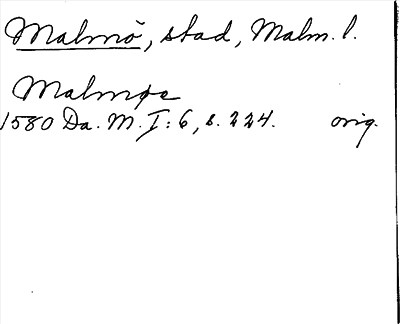 Malmö, stad, Malm. l.
Malmøe
1580 Da. M. I: 6, s. 224. orig.